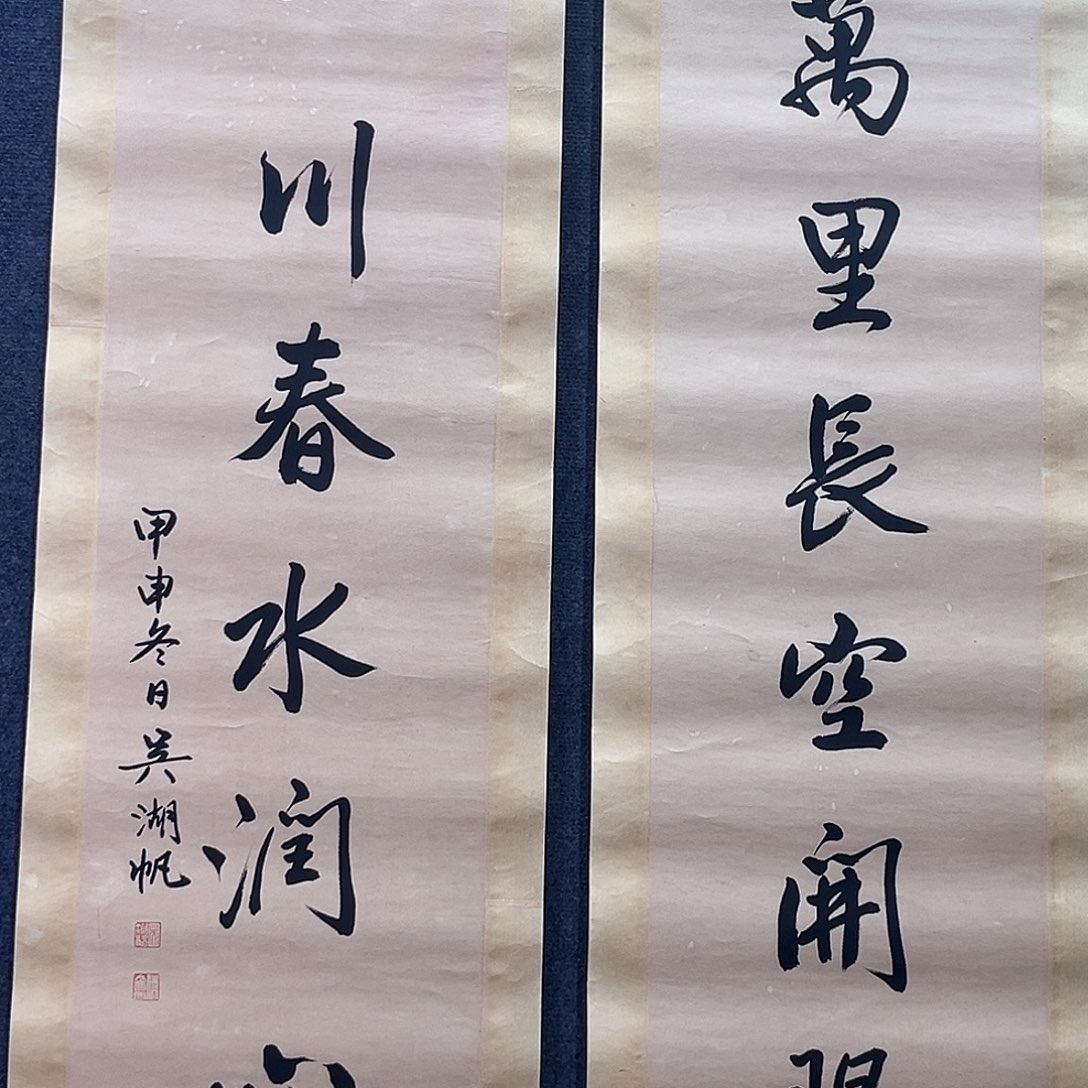 萬里長空開
川春水潤
甲申冬日吳湖帆